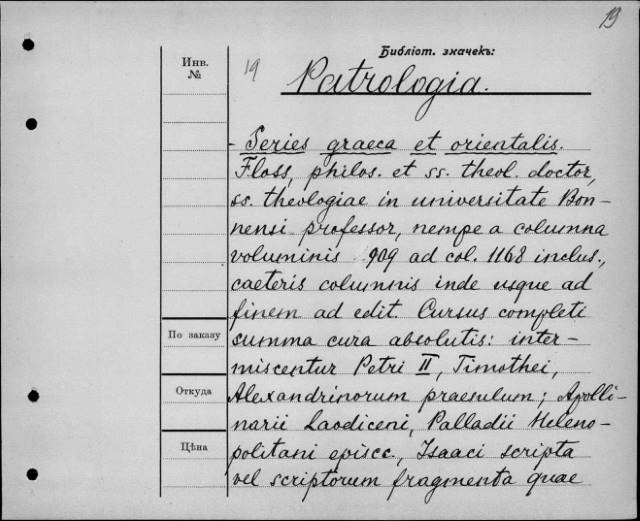 19
Библіот. значекъ:
Инв.
№
19
Patrologia.
- Series graeca et orientalis.
Floss, philos. et ss. theol. doctor,
ss. theologiae in universitate Bon-
nensi professor, nempe a columna
voluminis 909 ad col. 1168 inclus.,
caeteris columnis inde usque ad
finem ad edit. Cursus completi
summa cura absolutis: inter-
miscentur Petri II, Timothei,
Alexandrinorum praesulum; Apolli-
narii Laodiceni, Palladii Heleno-
politani episcc., Isaaci scripta
vel scriptorum fragmenta quae
По заказу
Откуда
Цѣна